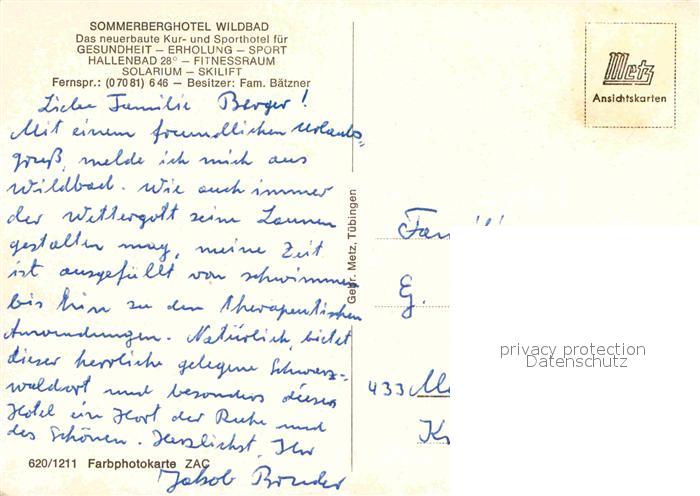 SOMMERBERGHOTEL WILDBAD
Das neuerbaute Kur- und Sporthotel für
GESUNDHEIT — ERHOLUNG — SPORT
HALLENBAD 28° — FITNESSRAUM
SOLARIUM — SKILIFT
Fernspr.: (0 70 81) 6 46 — Besitzer: Fam. Bätzner
Metz
Ansichtskarten
Liebe Familie Berger!
Mit einem freundlichen Urlaubs-
gruß, melde ich mich aus
Wildbad. Wie auch immer
der Wettergott seine Launen
gestalten mag, meine Zeit
ist ausgefüllt von schwimmen
bis hin zu den therapeutischen
Anwendungen. Natürlich, bietet
dieser herrliche gelegene Schwarz-
waldort und besonders dieses
Hotel ein Hort der Ruhe und
des Schönen. Herzlichst, Ihr
Jakob
620/1211 Farbphotokarte ZAC
Gebr. Metz, Tübingen
G.
433
privacy protection
Datenschutz